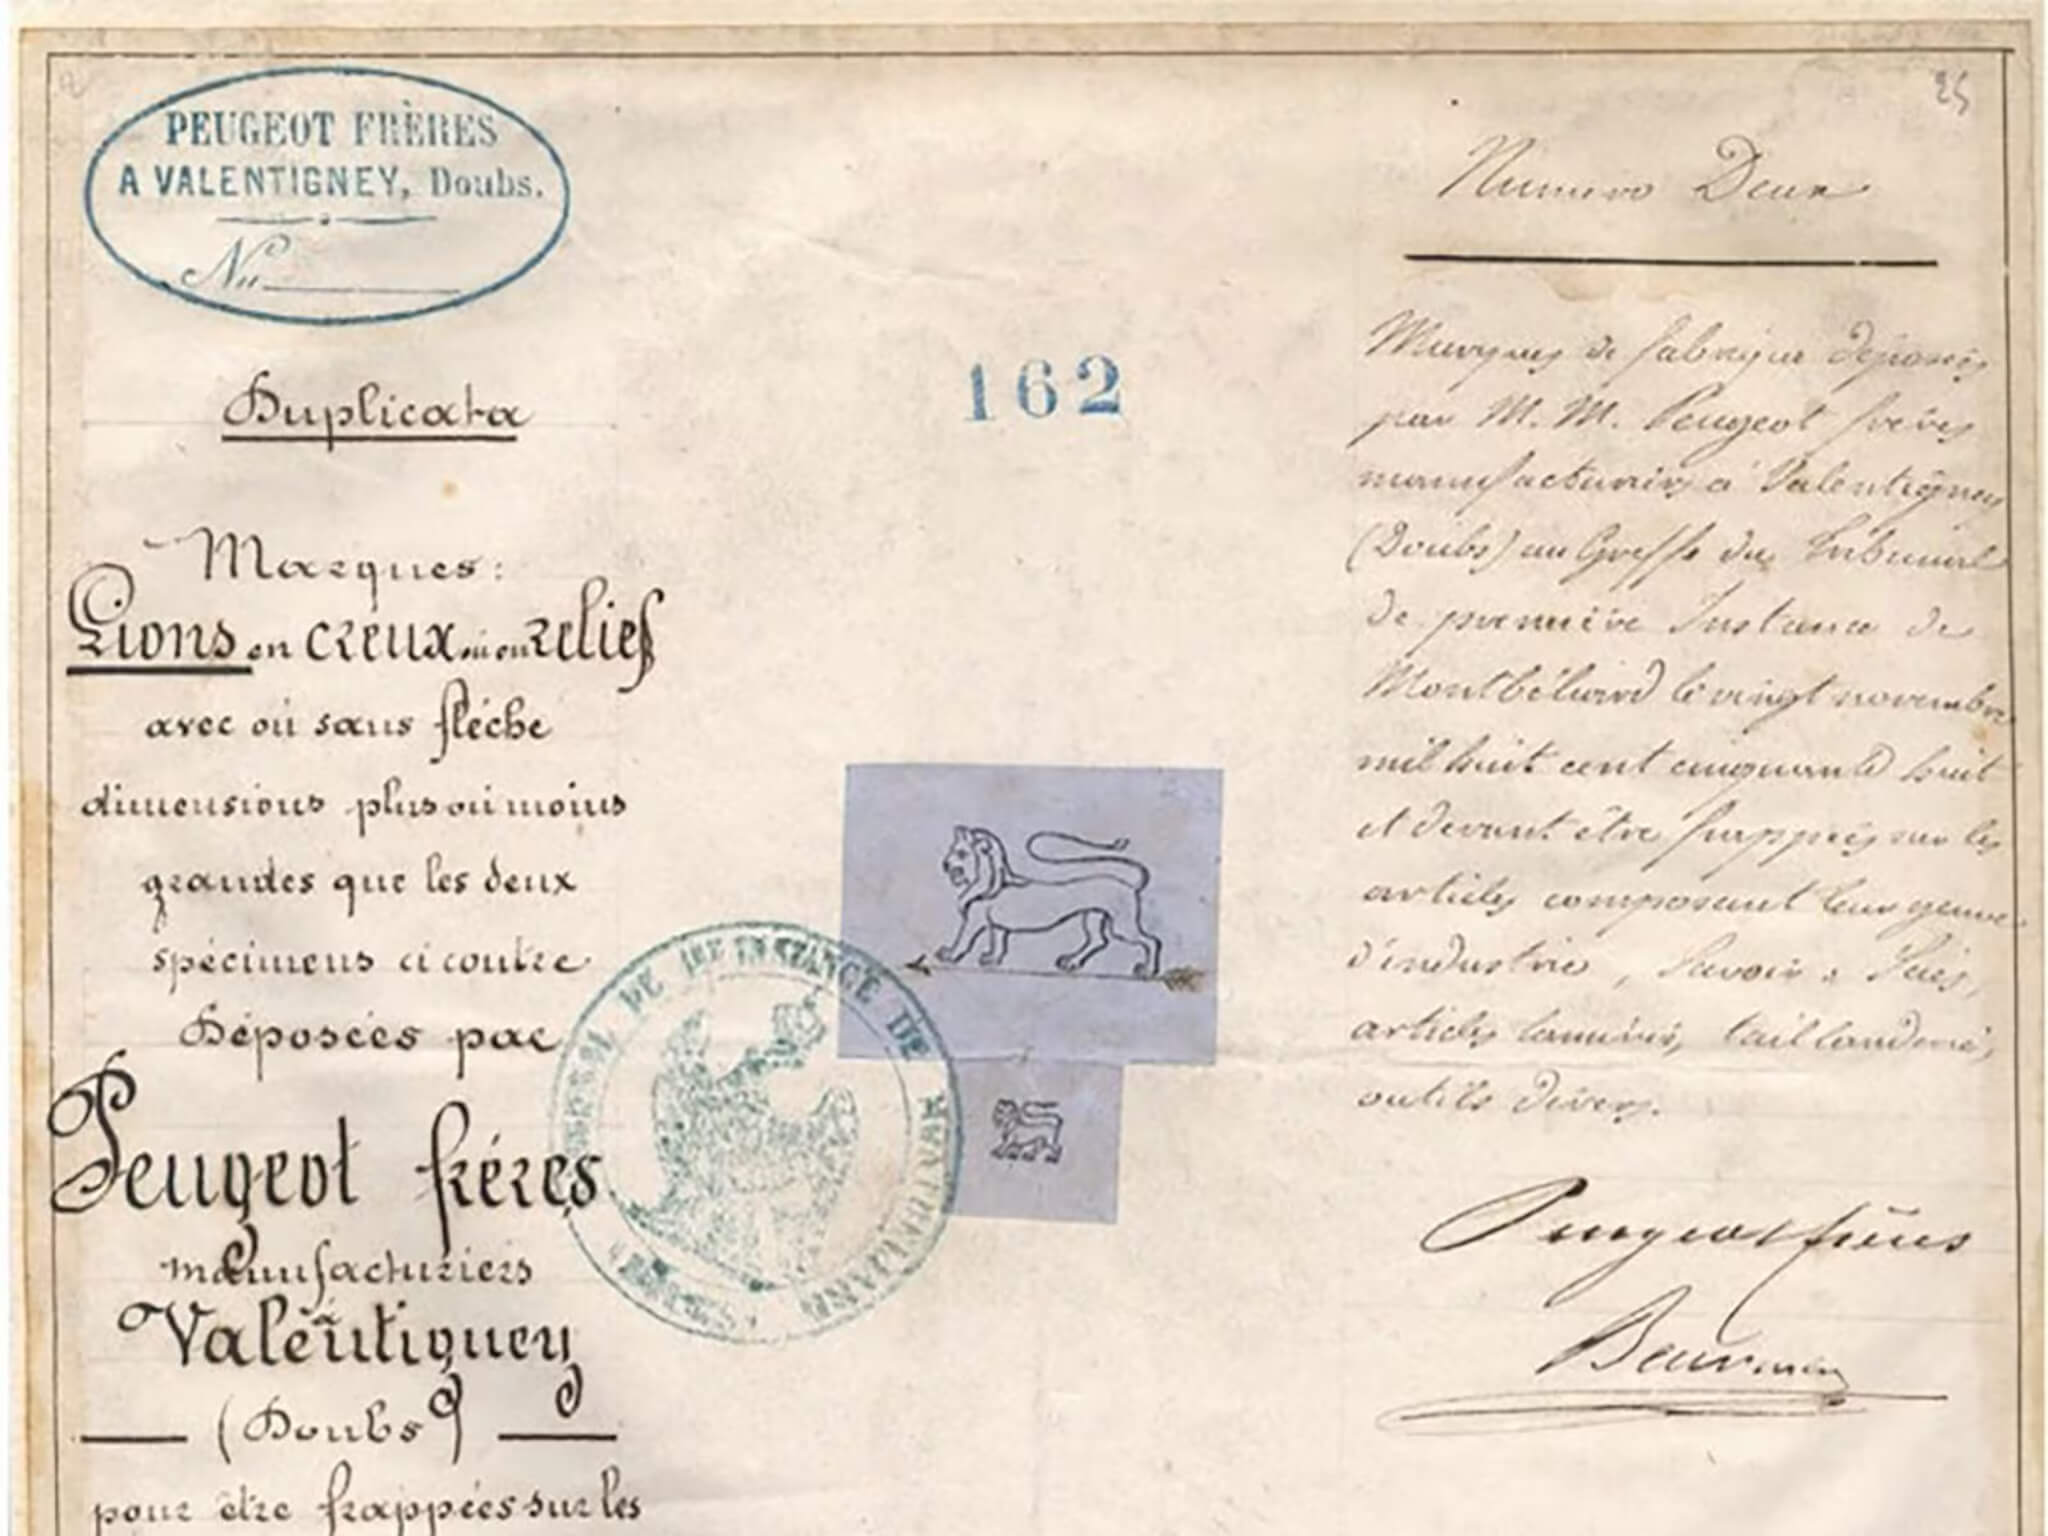 PEUGEOT FRÈRES
A VALENTIGNEY, Doubs.
No
Duplicata
Marques:
Lions en creux ou en relief
avec ou sans flèche
dimensions plus ou moins
grandes que les deux
spécimens ci contre
Déposées par
Peugeot frères
manufacturiers
à
Valentigney
(Doubs)
pour être frappées sur les
162
TRIBUNAL DE 1RE INSTANCE DE MONTBÉLIARD
25
Numéro Deux
Marques de fabrique déposées
par M. M. Peugeot frères
manufacturiers à Valentigney
(Doubs) au Greffe du Tribunal
de première Instance de
Montbéliard le vingt novembre
mil huit cent cinquante huit
et devant être frappées sur les
articles composant leur genre
d'industrie, Savoir: Scies,
articles laminés, taillanderie,
outils divers.
Peugeot frères